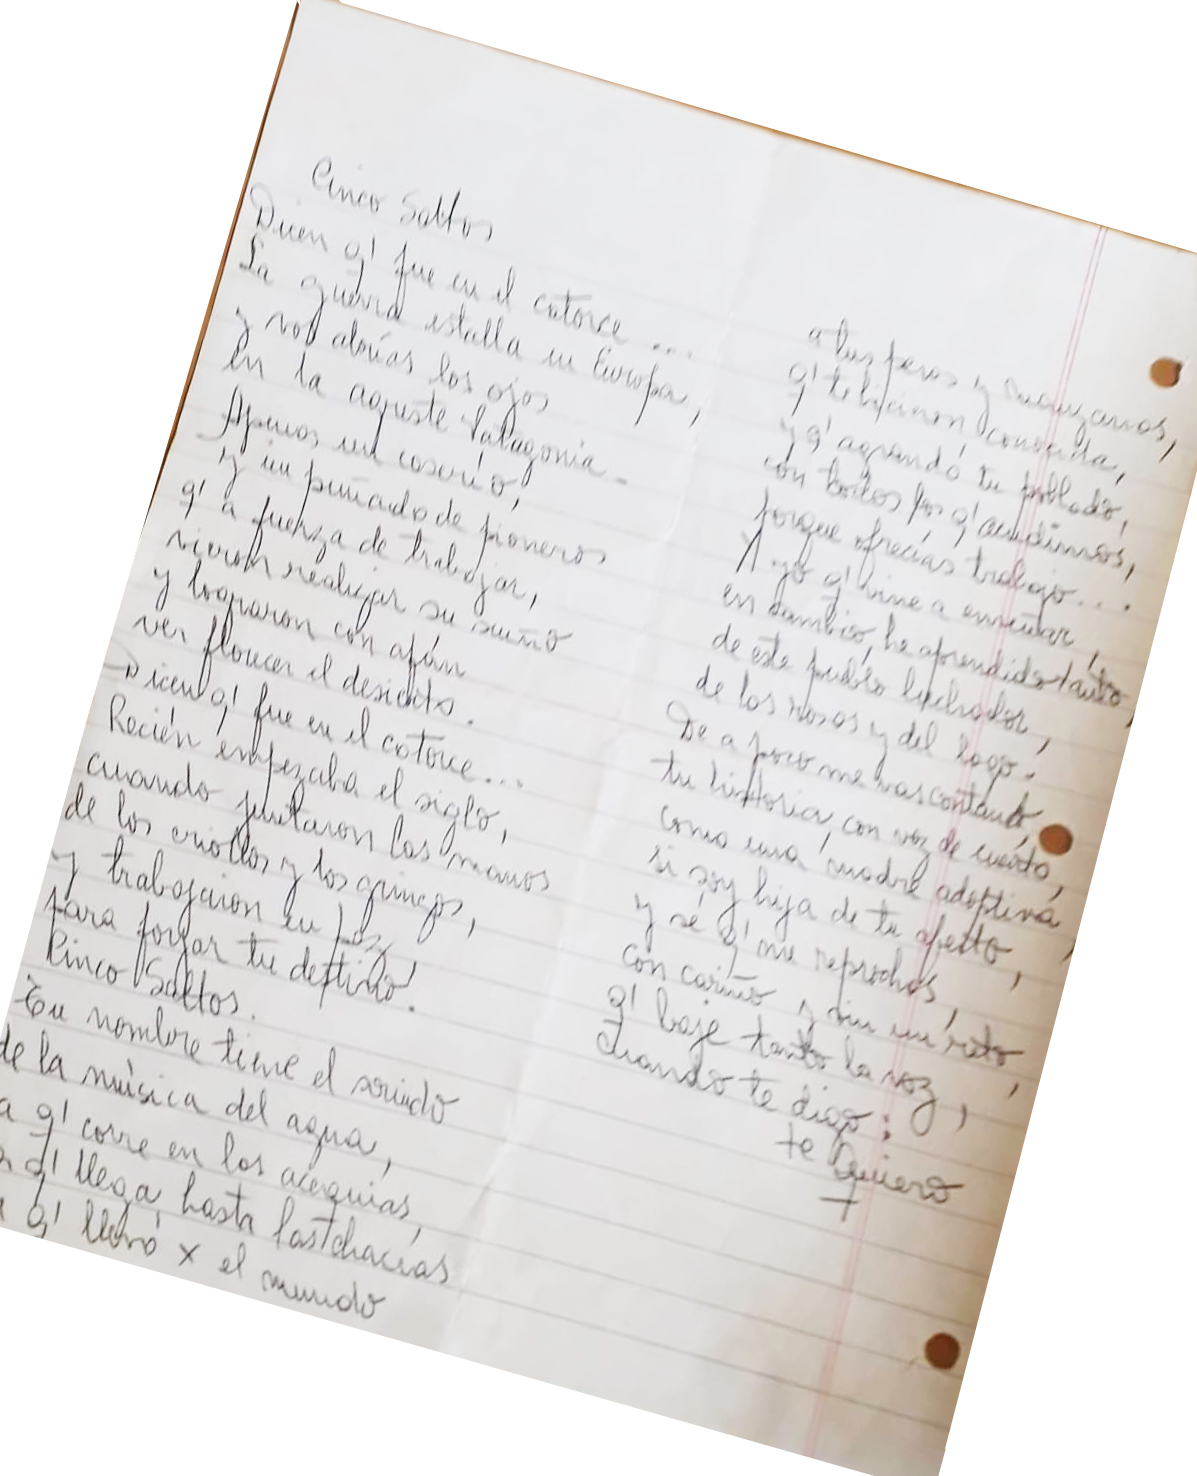 Cinco Saltos
Dicen q' fue en el catorce...
La guerra estalla en Europa,
y vos abrías los ojos
en la agreste Patagonia.
Apenas un caserío,
y un puñado de pioneros
q' a fuerza de trabajar,
vieron realizar su sueño
y lograron con afán
ver florecer el desierto.
Dicen q' fue en el catorce...
Recién empezaba el siglo,
cuando juntaron las manos
de los criollos y los gringos,
y trabajaron en paz
para forjar tu destino.
Cinco Saltos.
Tu nombre tiene el sonido
de la música del agua,
q' corre en las acequias,
q' llega hasta las chacras
q' llevó x el mundo
a tus peras y manzanas,
q' te hicieron conocida,
y q' agrandó tu poblado,
con todos los q' acudimos,
porque ofrecías trabajo...
A yo q' vine a enseñar,
en cambio, he aprendido tanto,
de este pueblo luchador,
de las rosas y del lago.
De a poco me vas contando,
tu historia, con voz de cuento,
como una madre adoptiva,
si soy hija de tu afecto,
y sé q' me reprochas,
con cariño y sin un reto,
q' baje tanto la voz,
cuando te digo:
te Quiero